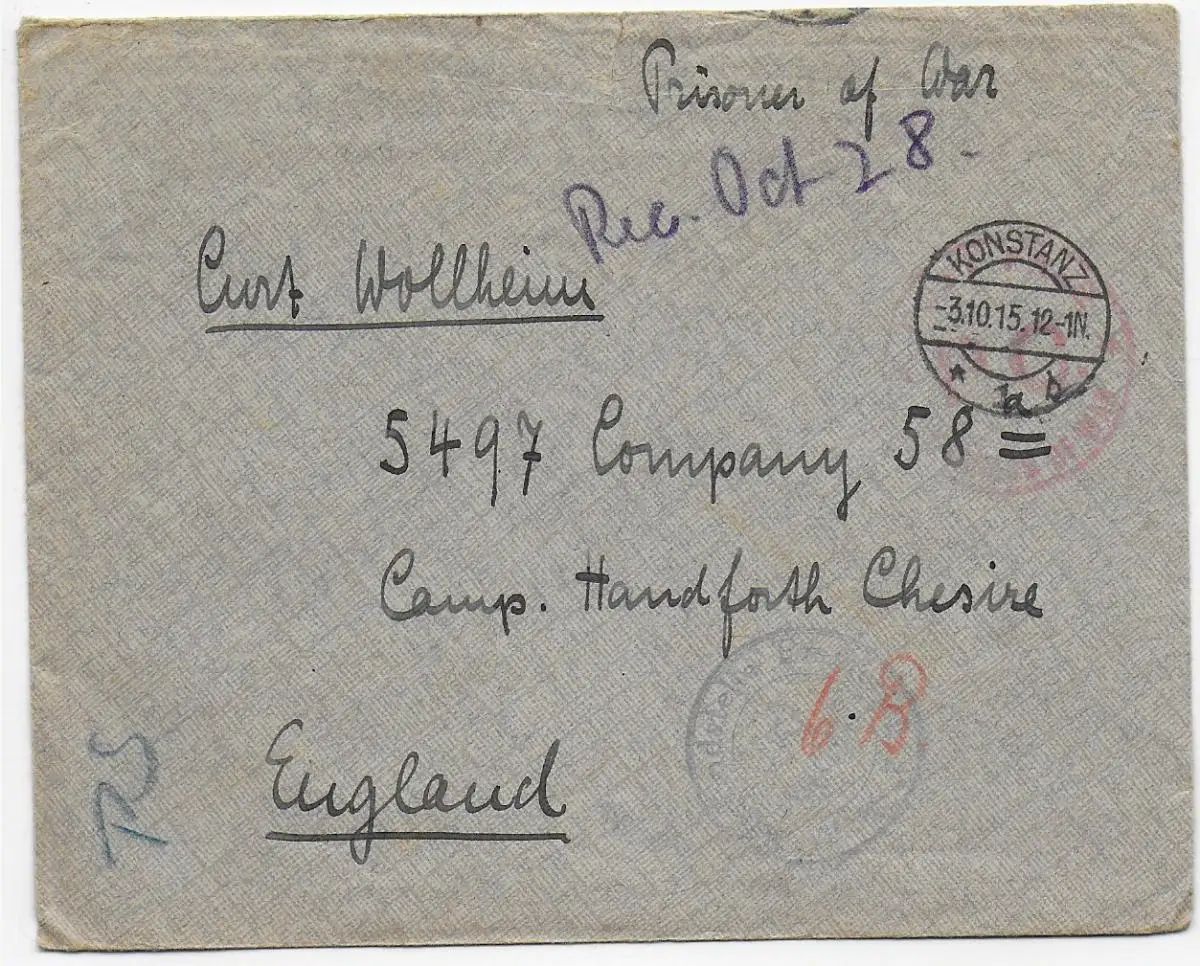 Prisoner of War
Rec. Oct 28.
Curt Wollheim
KONSTANZ
-3.10.15.12-1N.
* 1a b
5497 Company 58
Camp. Handforth Chesire
6.B.
England